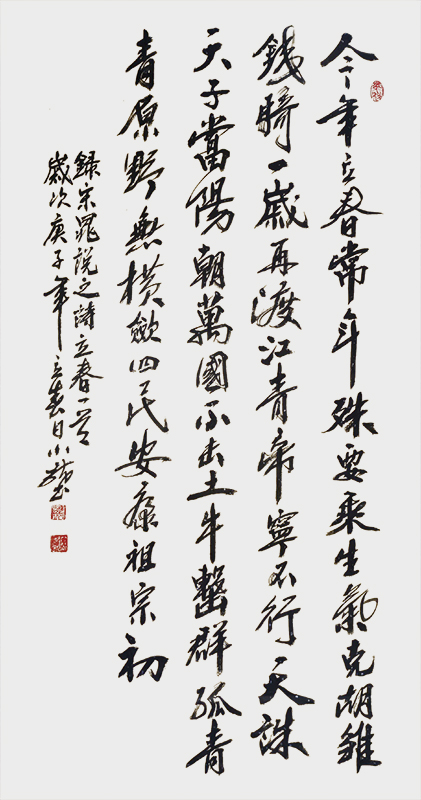 今年立春常年殊要乘生氣克胡雛
鐵騎一歲再渡江青帝寧不行天誅
天子當陽朝萬國不出土牛擊群狐青
青原野無橫斂四民安康祖宗初
錄宋晁說之詩立春一首
歲次庚子年立春日小